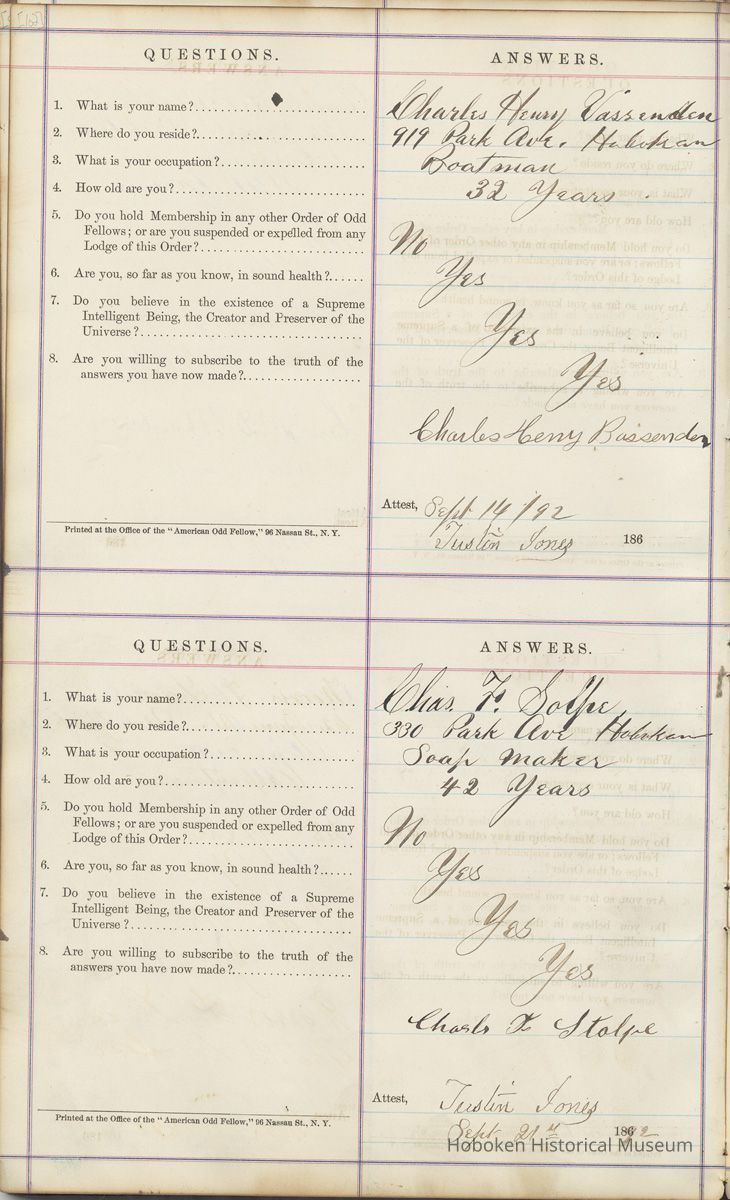 QUESTIONS.
ANSWERS.
1. What is your name?
Charles Henry Vassenden
2. Where do you reside?
919 Park Ave. Hoboken
3. What is your occupation?
Boatman
4. How old are you?
32 Years
5. Do you hold Membership in any other Order of Odd
Fellows; or are you suspended or expelled from any
Lodge of this Order?
No
6. Are you, so far as you know, in sound health?
Yes
7. Do you believe in the existence of a Supreme
Intelligent Being, the Creator and Preserver of the
Universe?
Yes
8. Are you willing to subscribe to the truth of the
answers you have now made?
Yes
Charles Henry Bassenden
Attest, Sept 14/92
Justin Jones 186
Printed at the Office of the "American Odd Fellow," 96 Nassau St., N. Y.
QUESTIONS.
ANSWERS.
1. What is your name?
Chas. F. Solpe
2. Where do you reside?
330 Park Ave Hoboken
3. What is your occupation?
Soap maker
4. How old are you?
42 Years
5. Do you hold Membership in any other Order of Odd
Fellows; or are you suspended or expelled from any
Lodge of this Order?
No
6. Are you, so far as you know, in sound health?
Yes
7. Do you believe in the existence of a Supreme
Intelligent Being, the Creator and Preserver of the
Universe?
Yes
8. Are you willing to subscribe to the truth of the
answers you have now made?
Yes
Charls F Stolpe
Attest, Justin Jones
Sept 21st 1892
Printed at the Office of the "American Odd Fellow," 96 Nassau St., N. Y.
Hoboken Historical Museum